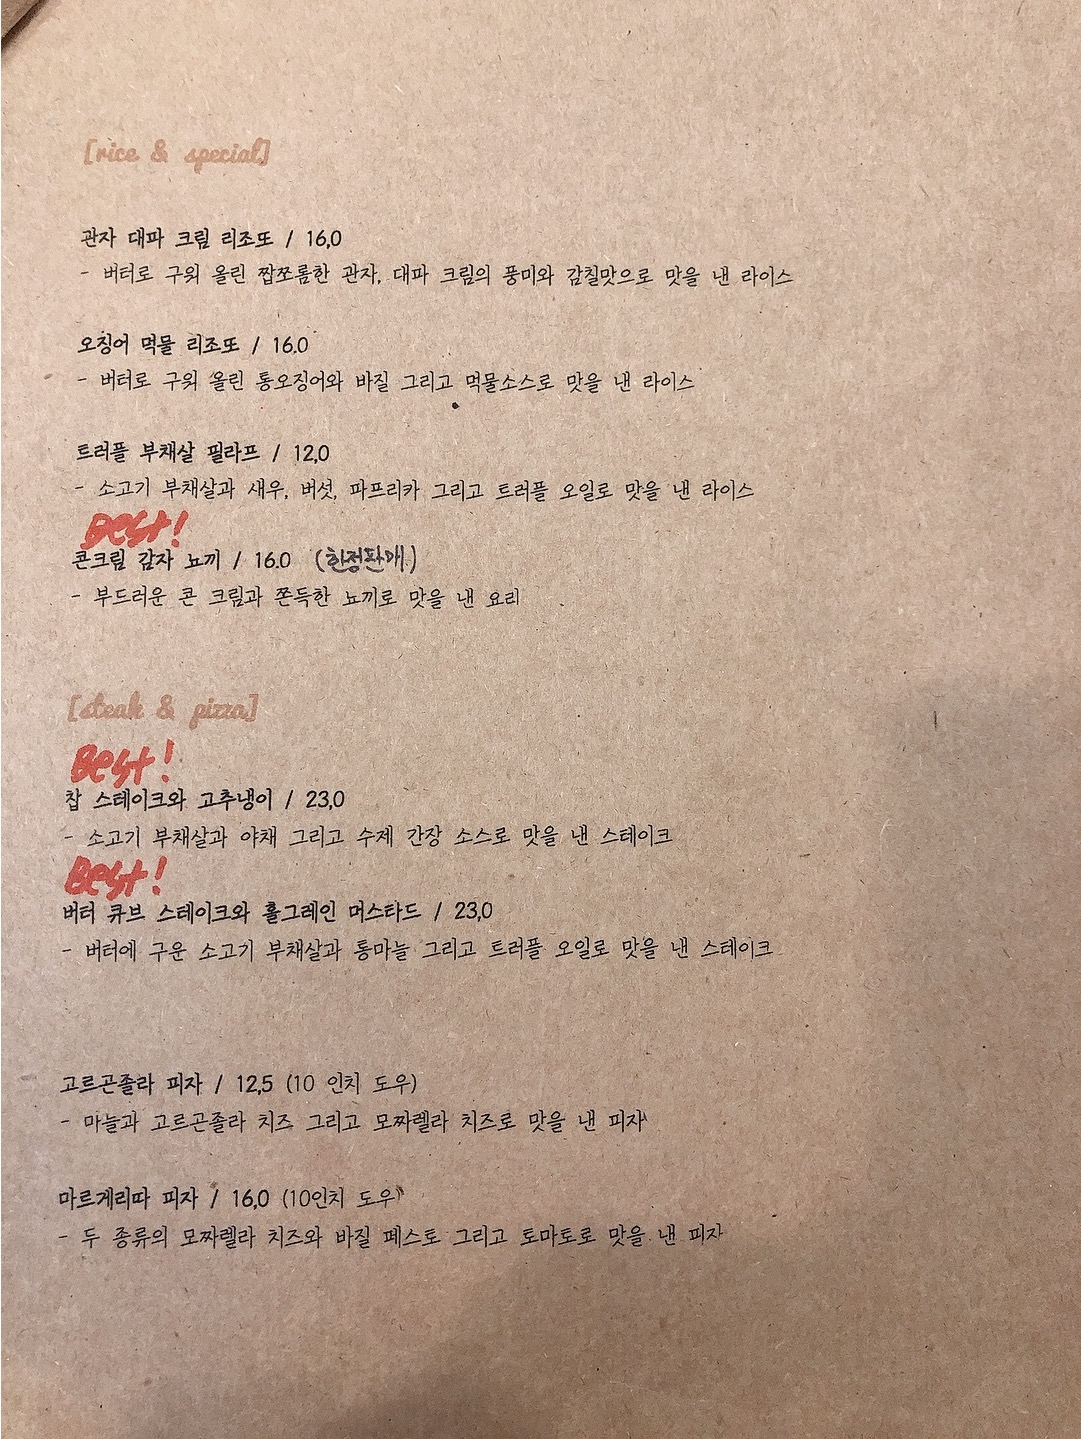 [rice & special]
관자 대파 크림 리조또 / 16,0
- 버터로 구워 올린 짭쪼롬한 관자, 대파 크림의 풍미와 감칠맛으로 맛을 낸 라이스
오징어 먹물 리조또 / 16.0
- 버터로 구워 올린 통오징어와 바질 그리고 먹물소스로 맛을 낸 라이스
트러플 부채살 필라프 / 12,0
- 소고기 부채살과 새우, 버섯, 파프리카 그리고 트러플 오일로 맛을 낸 라이스
Best!
콘크림 감자 뇨끼 / 16.0 (한정판매)
- 부드러운 콘 크림과 쫀득한 뇨끼로 맛을 낸 요리
[steak & pizza]
Best!
찹 스테이크와 고추냉이 / 23,0
- 소고기 부채살과 야채 그리고 수제 간장 소스로 맛을 낸 스테이크
Best!
버터 큐브 스테이크와 홀그레인 머스타드 / 23,0
- 버터에 구운 소고기 부채살과 통마늘 그리고 트러플 오일로 맛을 낸 스테이크
고르곤졸라 피자 / 12,5 (10 인치 도우)
- 마늘과 고르곤졸라 치즈 그리고 모짜렐라 치즈로 맛을 낸 피자
마르게리따 피자 / 16,0 (10인치 도우)
- 두 종류의 모짜렐라 치즈와 바질 페스토 그리고 토마토로 맛을 낸 피자